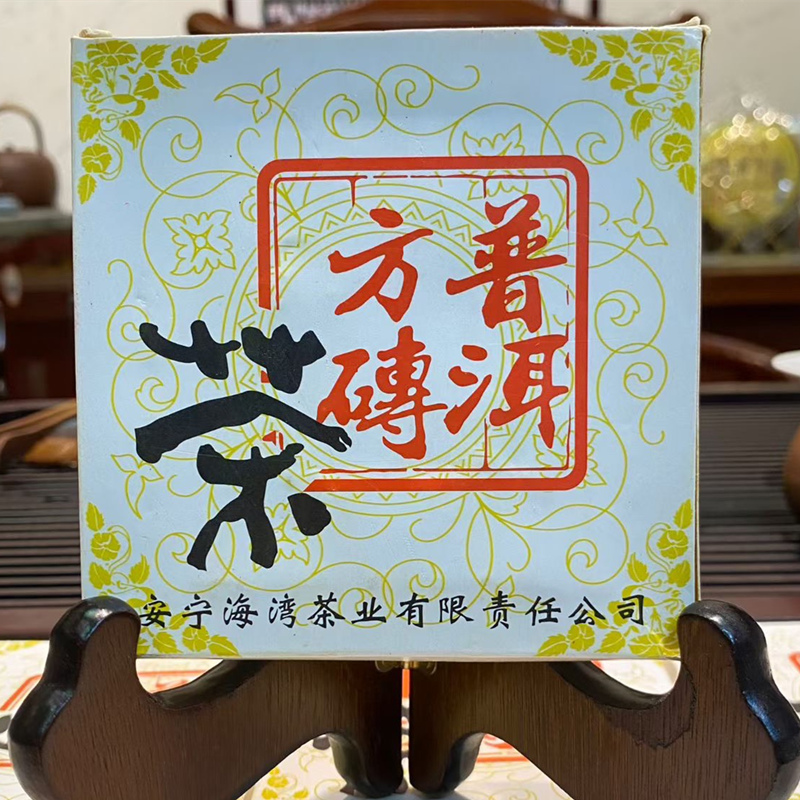 普洱
方磚
茶
安宁海湾茶业有限责任公司